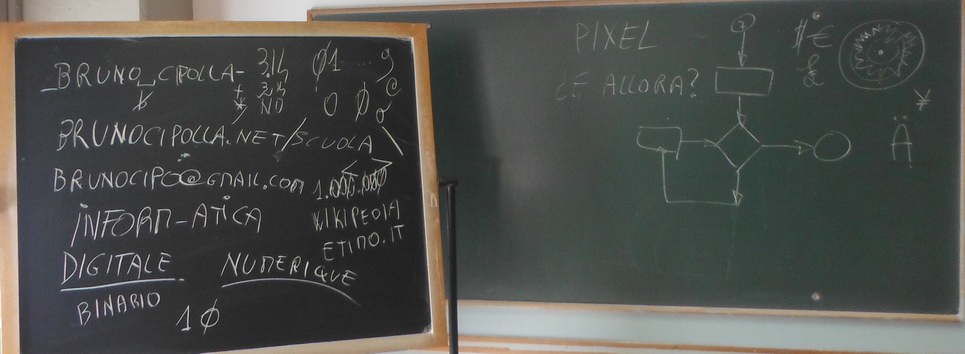 _BRUNO_CIPOLLA-
3.14
3.14
+
NO
01.....9
@
0 0
BRUNOCIPOLLA.NET/SCUOLA \
BRUNOCIPO@GMAIL.COM
1.000.000
INFORM-ATICA
WIKIPEDIA
ETIMO.IT
DIGITALE
NUMERIQUE
BINARIO
10
PIXEL
¿E ALLORA?
$ €
£
¥
Ä